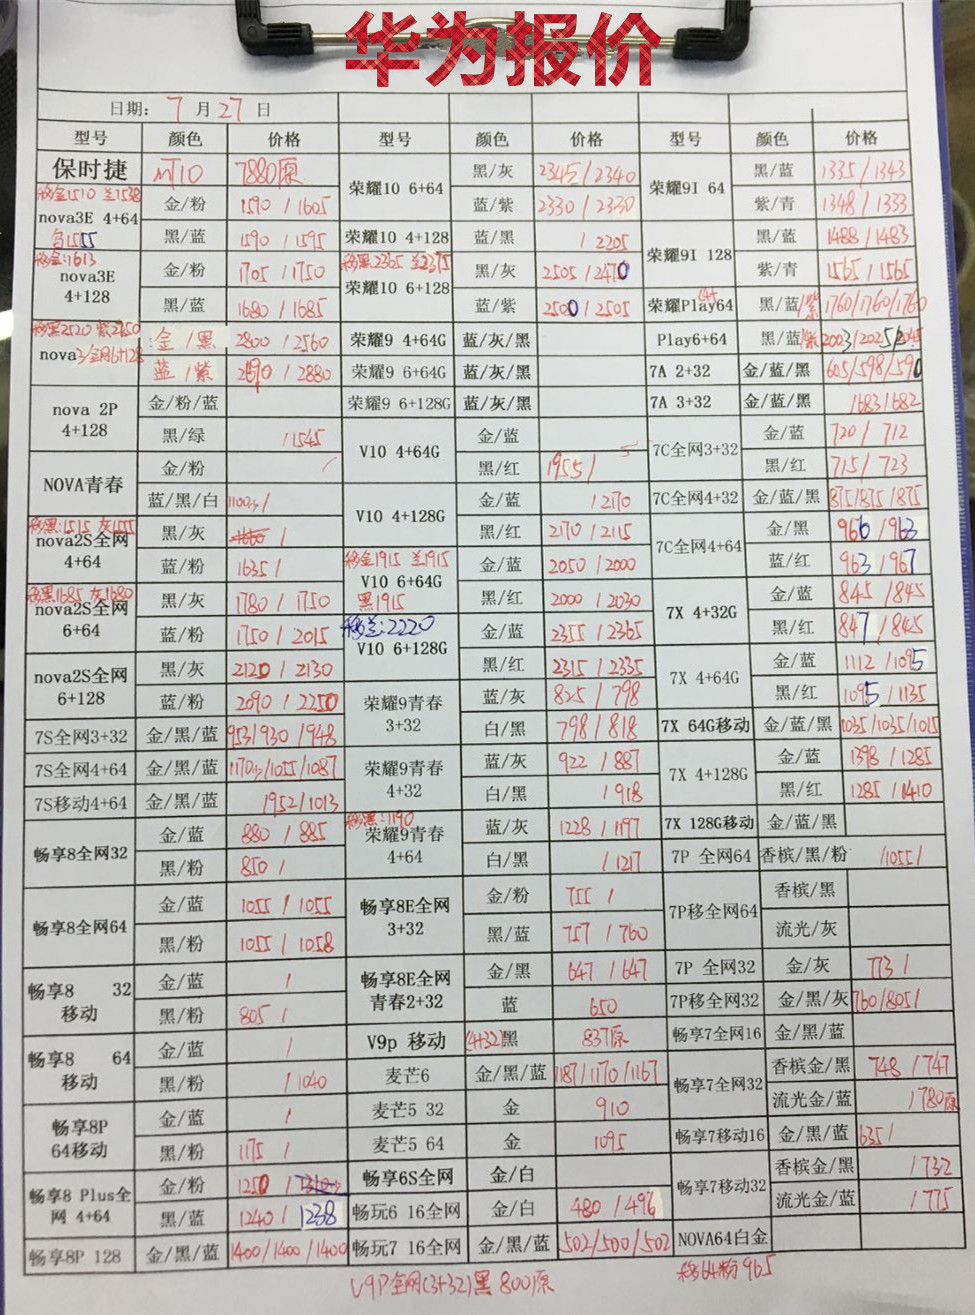 华为报价
日期: 7月27日
型号 颜色 价格 型号 颜色 价格 型号 颜色 价格
保时捷 MT10 7880原
移金1510 兰1538
nova3E 4+64 金/粉 1590 / 1605
黑/蓝 1590 / 1595
移金:1613
nova3E 4+128 金/粉 1705 / 1750
黑/蓝 1680 / 1685
移黑2520
nova3/全网6+128 金/黑 2800 / 2560
蓝/紫 / 2880
nova 2P 4+128 金/粉/蓝
黑/绿 / 1545
NOVA青春 金/粉 /
蓝/黑/白
移黑:1515 灰1555
nova2S全网 4+64 黑/灰 /
蓝/粉 1635 /
移黑1685 灰1680
nova2S全网 6+64 黑/灰 1780 / 1750
蓝/粉 1750 / 2015
nova2S全网 6+128 黑/灰 2120 / 2130
蓝/粉 2090 / 2250
7S全网3+32 金/黑/蓝 953/930/948
7S全网4+64 金/黑/蓝 /1055/1087
7S移动4+64 金/黑/蓝 1952/1013
畅享8全网32 金/蓝 880 / 885
黑/粉 850 /
畅享8全网64 金/蓝 1055 / 1055
黑/粉 1055 / 1058
畅享8 32 移动 金/蓝 /
黑/粉 805 /
畅享8 64 移动 金/蓝 /
黑/粉 / 1040
畅享8P 64移动 金/蓝 /
黑/粉 1175 /
畅享8 Plus全网 4+64 金/粉 1250 /
黑/蓝 1240 / 1238
畅享8P 128 金/黑/蓝 1400/1400/1400
荣耀10 6+64 黑/灰 2345 / 2340
蓝/紫 2330 / 2330
荣耀10 4+128 蓝/黑 / 2205
移黑2365 兰2375
荣耀10 6+128 黑/灰 2505 / 2470
蓝/紫 2500 / 2505
荣耀9 4+64G 蓝/灰/黑
荣耀9 6+64G 蓝/灰/黑
荣耀9 6+128G 蓝/灰/黑
V10 4+64G 金/蓝
黑/红 1955 /
V10 4+128G 金/蓝 / 2170
黑/红 2170 / 2115
移金1915 兰1915
V10 6+64G 金/蓝 2050 / 2000
黑1915 黑/红 2000 / 2030
移兰:2220
V10 6+128G 金/蓝 2355 / 2365
黑/红 2315 / 2335
荣耀9青春 3+32 蓝/灰 825 / 798
白/黑 798 / 818
荣耀9青春 4+32 蓝/灰 922 / 887
白/黑 / 918
移黑:1190
荣耀9青春 4+64 蓝/灰 1228 / 1197
白/黑 / 1217
畅享8E全网 3+32 金/粉 755 /
黑/蓝 757 / 760
畅享8E全网 青春2+32 金/黑 647 / 647
蓝 650
V9p 移动 (4+32)黑 837原
麦芒6 金/黑/蓝 1187/1170/1167
麦芒5 32 金 910
麦芒5 64 金 1095
畅享6S全网 金/白
畅玩6 16全网 金/白 480 / 496
畅玩7 16全网 金/黑/蓝 502/500/502
荣耀9I 64 黑/蓝 1335 / 1343
紫/青 1348 / 1333
荣耀9I 128 黑/蓝 1488 / 1483
紫/青 1565 / 1565
荣耀Play 4+64 黑/蓝/紫 1760/1760/1760
Play6+64 黑/蓝/紫 2003/2025/2045
7A 2+32 金/蓝/黑 605/598/590
7A 3+32 金/蓝/黑 /683/682
7C全网3+32 金/蓝 720 / 712
黑/红 715 / 723
7C全网4+32 金/蓝/黑 875/875/875
7C全网4+64 金/黑 966 / 963
蓝/红 963 / 967
7X 4+32G 金/蓝 845 / 845
黑/红 847 / 845
7X 4+64G 金/蓝 1112 / 1095
黑/红 1095 / 1135
7X 64G移动 金/蓝/黑 1035/1035/1015
7X 4+128G 金/蓝 1398 / 1285
黑/红 1285 / 1410
7X 128G移动 金/蓝/黑
7P 全网64 香槟/黑/粉 /1055/
7P移全网64 香槟/黑
流光/灰
7P 全网32 金/灰 773 /
7P移全网32 金/黑/灰 760/805/
畅享7全网16 金/黑/蓝
畅享7全网32 香槟金/黑 748 / 747
流光金/蓝 / 780原
畅享7移动16 金/黑/蓝 635/
畅享7移动32 香槟金/黑 / 732
流光金/蓝 / 775
NOVA64白金
V9P全网(3+32)黑 800原
移64粉 965